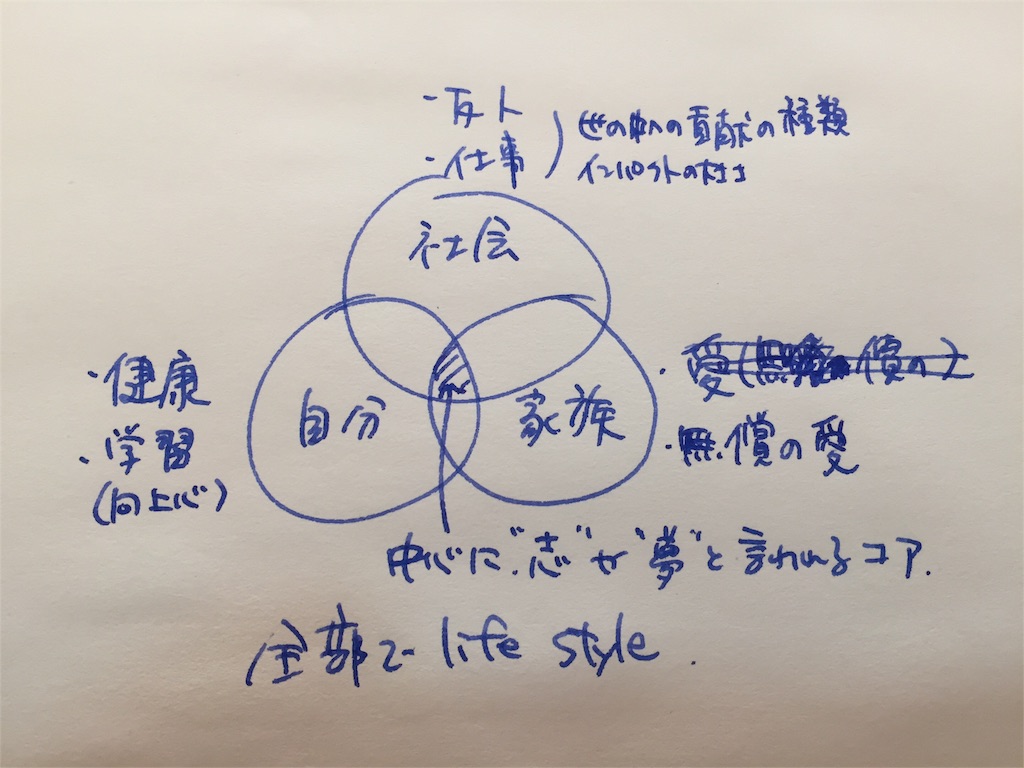 ・友人
・仕事
世の中への貢献の種類
インパクトの大きさ
社会
・健康
・学習
(向上心)
自分
家族
・愛(無償の)
・無償の愛
中心に"志"や"夢"と言われるコア.
全部で life style.